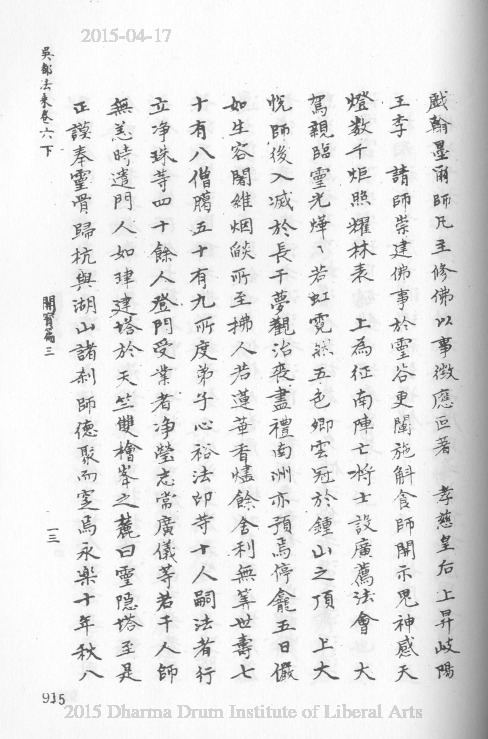 2015-04-17
戲翰墨爾師凡主修佛以事徵應叵著　孝慈皇后上昇岐陽
王李　請師崇建佛事於靈谷更闡施斛食師開示鬼神感天
燈數千炬照耀林表　上為征南陣亡將士設廣薦法會　大
駕親臨靈光燁、若虹霓然五色卿雲冠於鍾山之頂　上大
悅師後入滅於長干夢觀治喪盡禮南洲亦預焉停龕五日儼
如生容闍維烟燄所至拂人若蓮華香燼餘舍利無筭世壽七
十有八僧臈五十有九所度弟子心裕法印等十人嗣法者行
立净珠等四十餘人登門受業者净瑩志常廣儀等若干人師
無恙時遣門人如𤦹建塔於天竺雙檜峯之麓曰靈隱塔至是
正謨奉靈骨歸杭與湖山諸刹師德聚而窆焉永樂十年秋八
吳都法乘卷六下
開宵篇三
一三
915
2015 Dharma Drum Institute of Liberal Arts